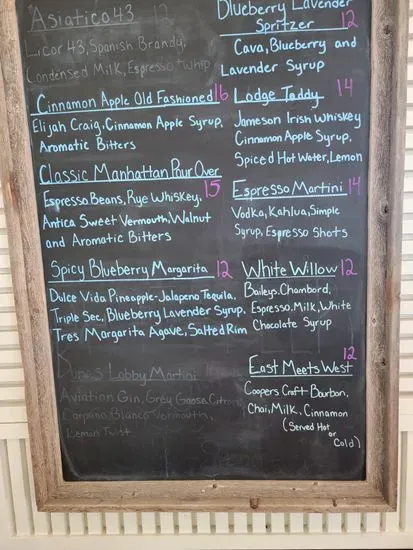 Asiatico 43 12
Licor 43, Spanish Brandy,
Condensed Milk, Espresso + Whip
Cinnamon Apple Old Fashioned 16
Elijah Craig, Cinnamon Apple Syrup,
Aromatic Bitters
Classic Manhattan Pour Over
Espresso Beans, Rye Whiskey, 15
Antica Sweet Vermouth, Walnut
and Aromatic Bitters
Spicy Blueberry Margarita 12
Dulce Vida Pineapple-Jalapeno Tequila,
Triple Sec, Blueberry Lavender Syrup,
Tres Margarita Agave, Salted Rim
Lobby Martini
Aviation Gin, Grey Goose Citron,
Carpano Blanco Vermouth,
Lemon Twist
Blueberry Lavender
Spritzer 12
Cava, Blueberry and
Lavender Syrup
Lodge Toddy 14
Jameson Irish Whiskey
Cinnamon Apple Syrup,
Spiced Hot Water, Lemon
Espresso Martini 14
Vodka, Kahlua, Simple
Syrup, Espresso Shots
White Willow 12
Baileys, Chambord,
Espresso, Milk, White
Chocolate Syrup
12
East Meets West
Coopers Craft Bourbon,
Chai, Milk, Cinnamon
(Served Hot
or
Cold)